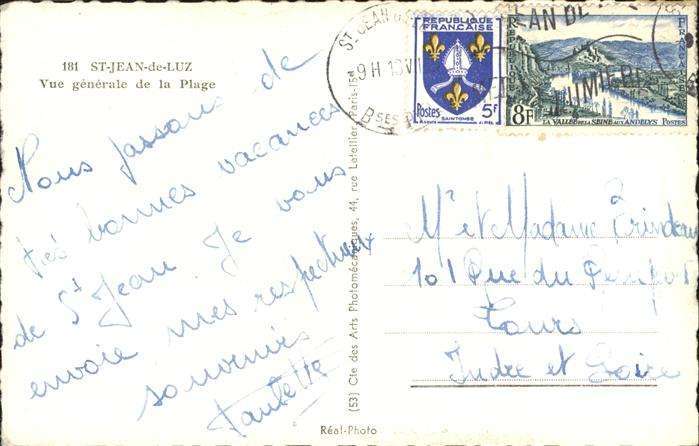 181 ST-JEAN-de-LUZ
Vue générale de la Plage
Nous passons de
très bonnes vacances
de St Jean Je vous
envoie mes respectueux
souvenirs
Paulette
(53) Cie des Arts Photomécaniques, 44, rue Letellier, Paris-15e
Réal-Photo
ST JEAN
9H 1
BSES
REPUBLIQUE
FRANÇAISE
Postes 5F
SAINTONGE
JEAN DE
LUMIÈRE
REPUBLIQUE
FRANÇAISE
8F LA VALLÉE DE LA SEINE AUX ANDELYS POSTES
Mr et Madame
101 Rue du
Tours
Indre et Loire